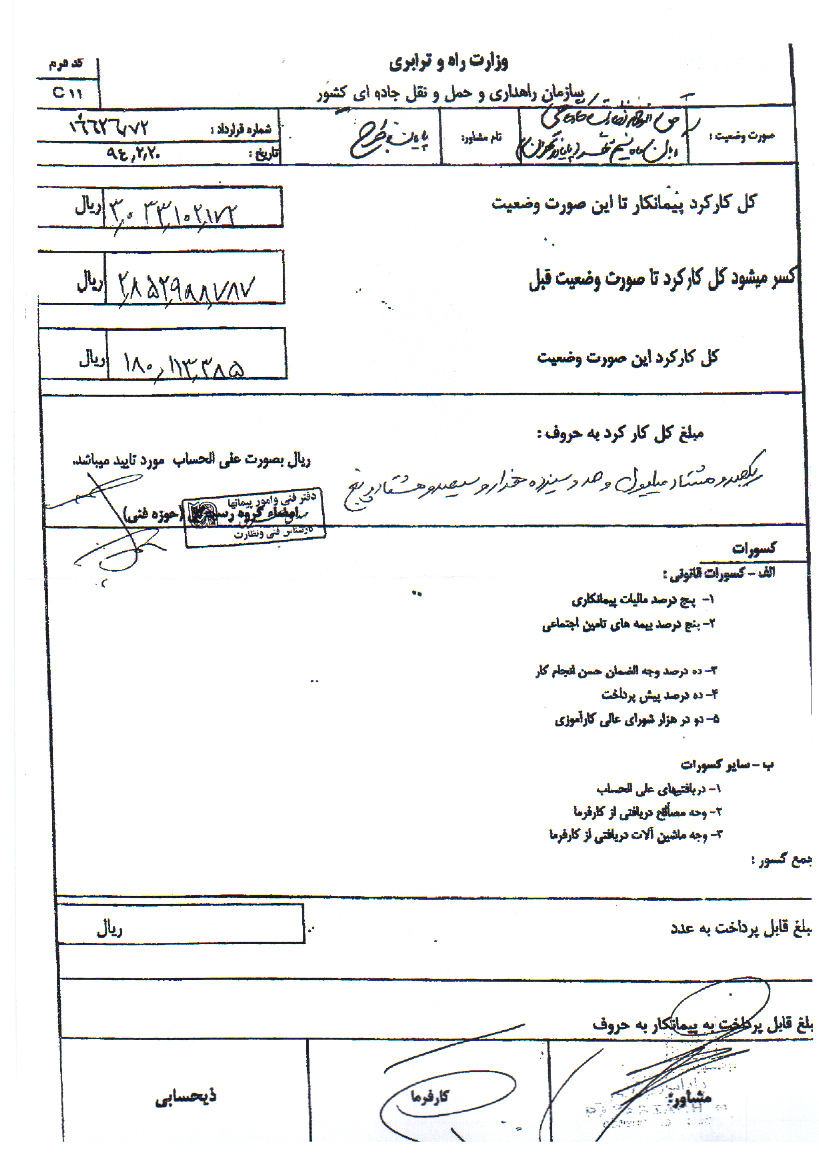 وزارت راه و ترابری
سازمان راهداری و حمل و نقل جاده ای کشور
کد فرم
C۱۱
صورت وضعیت :
نام مشاور:
شماره قرارداد :
تاریخ : ۹۴,۲,۲۰
کل کارکرد پیمانکار تا این صورت وضعیت
۳,۰۳۳,۱۰۲,۱۷۲ ریال
کسر میشود کل کارکرد تا صورت وضعیت قبل
۲,۸۵۲,۹۸۸,۷۸۷ ریال
کل کارکرد این صورت وضعیت
۱۸۰,۱۱۳,۳۸۵ ریال
مبلغ کل کار کرد به حروف :
یکصد و هشتاد میلیون و صد و سیزده هزار و سیصد و هشتاد و پنج
ریال بصورت علی الحساب مورد تایید میباشد.
دفتر فنی و امور پیمانها
امضاء گروه رسیدگی (حوزه فنی)
کارشناس فنی و نظارت
کسورات
الف – کسورات قانونی :
۱- پنج درصد مالیات پیمانکاری
۲- پنج درصد بیمه های تامین اجتماعی
۳- ده درصد وجه الضمان حسن انجام کار
۴- ده درصد پیش پرداخت
۵- دو در هزار شورای عالی کارآموزی
ب – سایر کسورات
۱- دریافتیهای علی الحساب
۲- وجه مصالح دریافتی از کارفرما
۳- وجه ماشین آلات دریافتی از کارفرما
جمع کسور :
مبلغ قابل پرداخت به عدد
ریال
مبلغ قابل پرداخت به پیمانکار به حروف
مشاور:
کارفرما
ذیحسابی